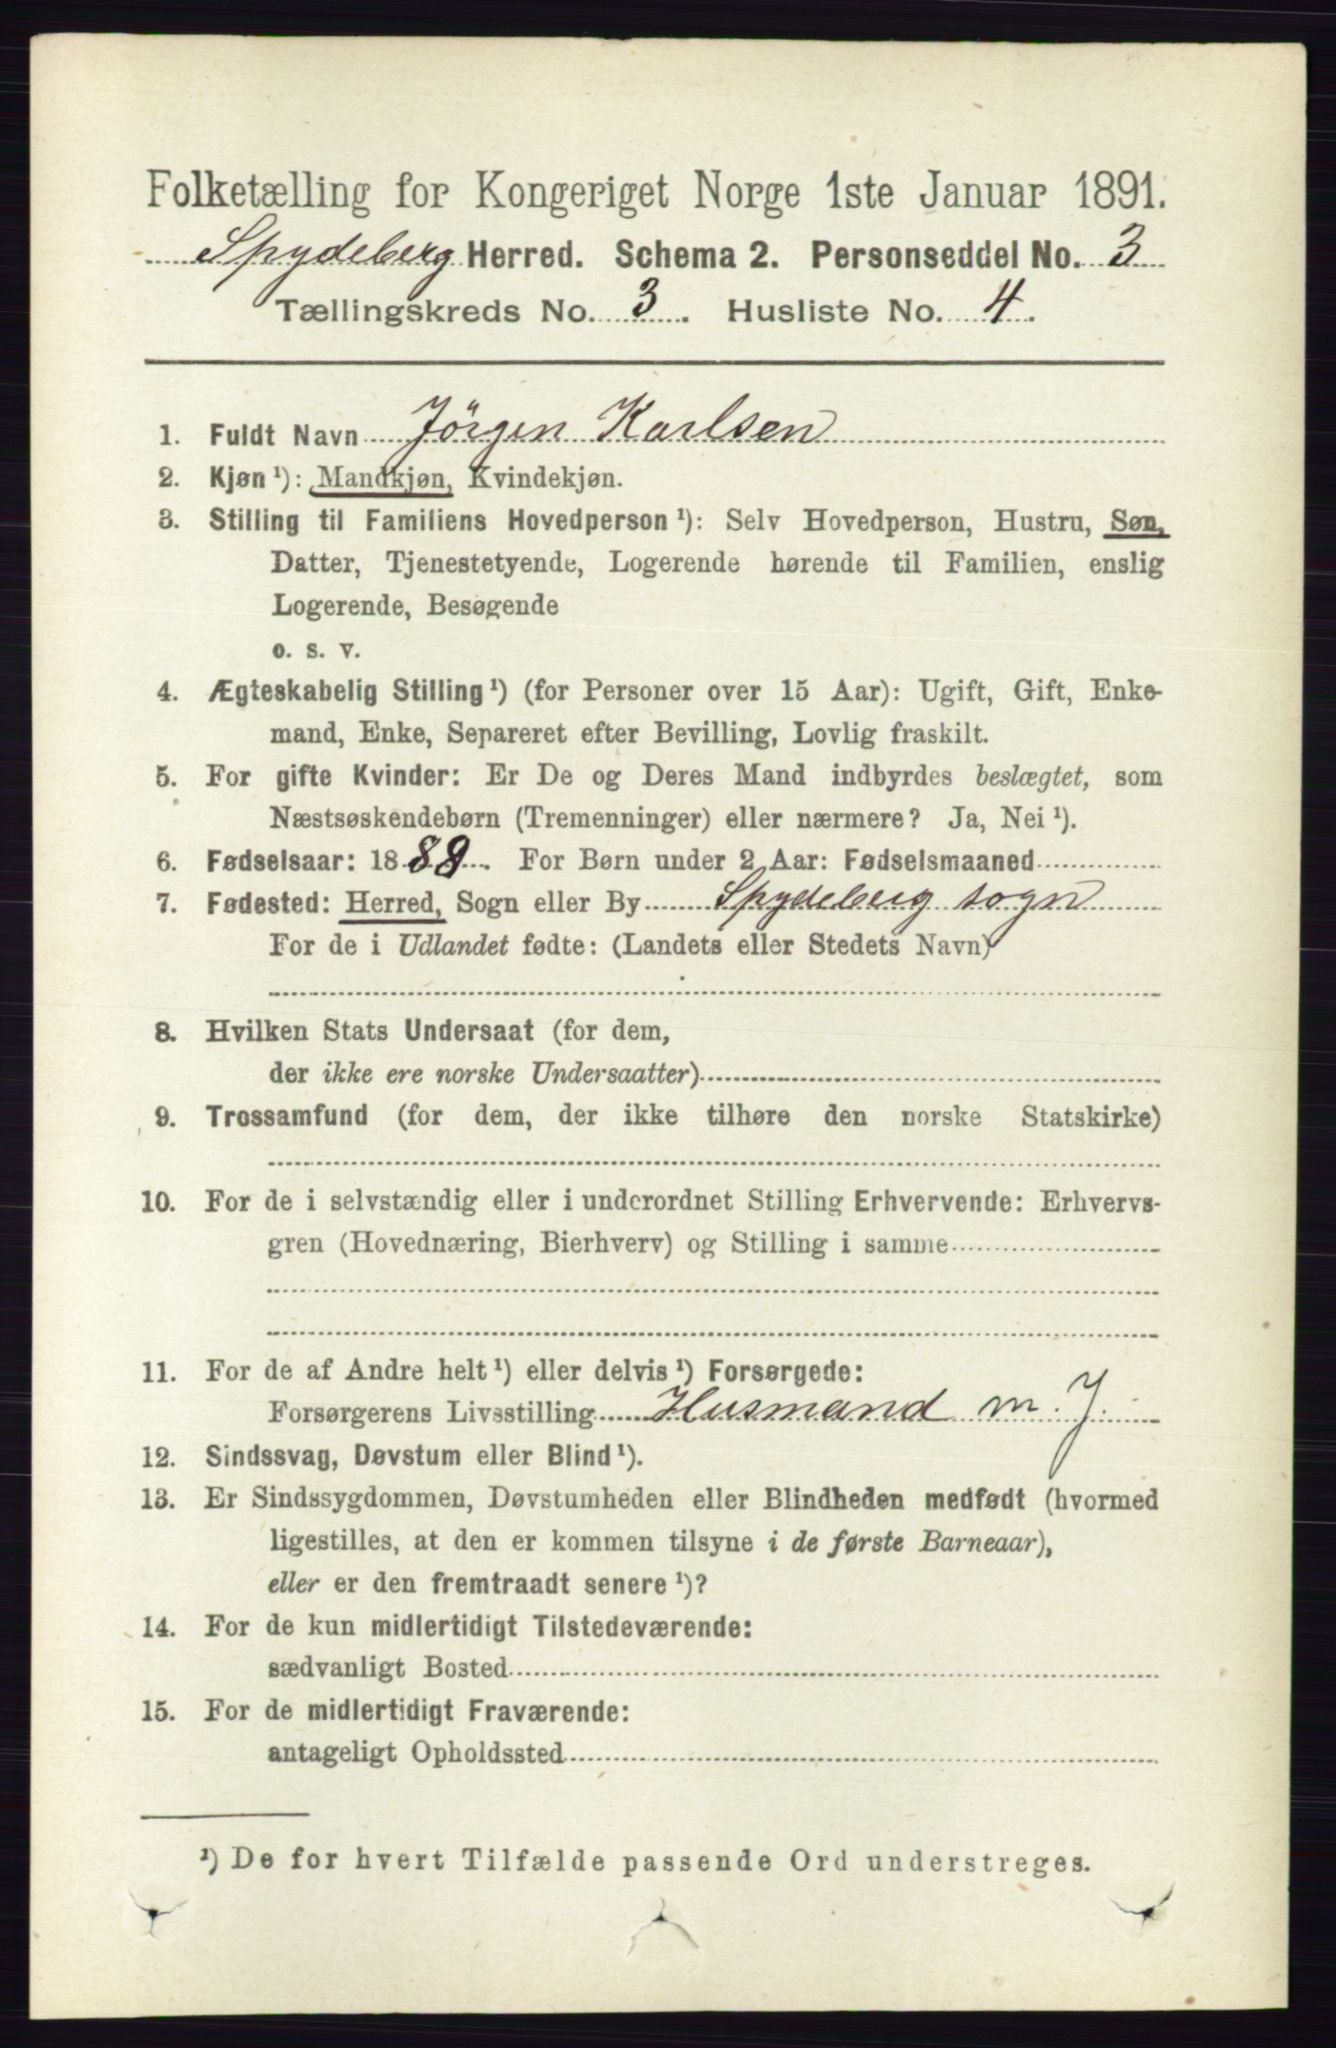 Folketælling for Kongeriget Norge 1ste Januar 1891.
Spydeberg Herred. Schema 2. Personseddel No. 3
Tællingskreds No. 3. Husliste No. 4.
1. Fuldt Navn Jörgen Karlsen
2. Kjøn ¹): Mandkjøn, Kvindekjøn.
3. Stilling til Familiens Hovedperson ¹): Selv Hovedperson, Hustru, Søn,
Datter, Tjenestetyende, Logerende hørende til Familien, enslig
Logerende, Besøgende
o. s. v.
4. Ægteskabelig Stilling ¹) (for Personer over 15 Aar): Ugift, Gift, Enke-
mand, Enke, Separeret efter Bevilling, Lovlig fraskilt.
5. For gifte Kvinder: Er De og Deres Mand indbyrdes beslægtet, som
Næstsøskendebørn (Tremenninger) eller nærmere? Ja, Nei ¹).
6. Fødselsaar: 1888. For Børn under 2 Aar: Fødselsmaaned
7. Fødested: Herred, Sogn eller By Spydeberg sogn
For de i Udlandet fødte: (Landets eller Stedets Navn)
8. Hvilken Stats Undersaat (for dem,
der ikke ere norske Undersaatter)
9. Trossamfund (for dem, der ikke tilhøre den norske Statskirke)
10. For de i selvstændig eller i underordnet Stilling Erhvervende: Erhvervs-
gren (Hovednæring, Bierhverv) og Stilling i samme
11. For de af Andre helt ¹) eller delvis ¹) Forsørgede:
Forsørgerens Livsstilling Husmand m. J.
12. Sindssvag, Døvstum eller Blind ¹).
13. Er Sindssygdommen, Døvstumheden eller Blindheden medfødt (hvormed
ligestilles, at den er kommen tilsyne i de første Barneaar),
eller er den fremtraadt senere ¹)?
14. For de kun midlertidigt Tilstedeværende:
sædvanligt Bosted
15. For de midlertidigt Fraværende:
antageligt Opholdssted
¹) De for hvert Tilfælde passende Ord understreges.